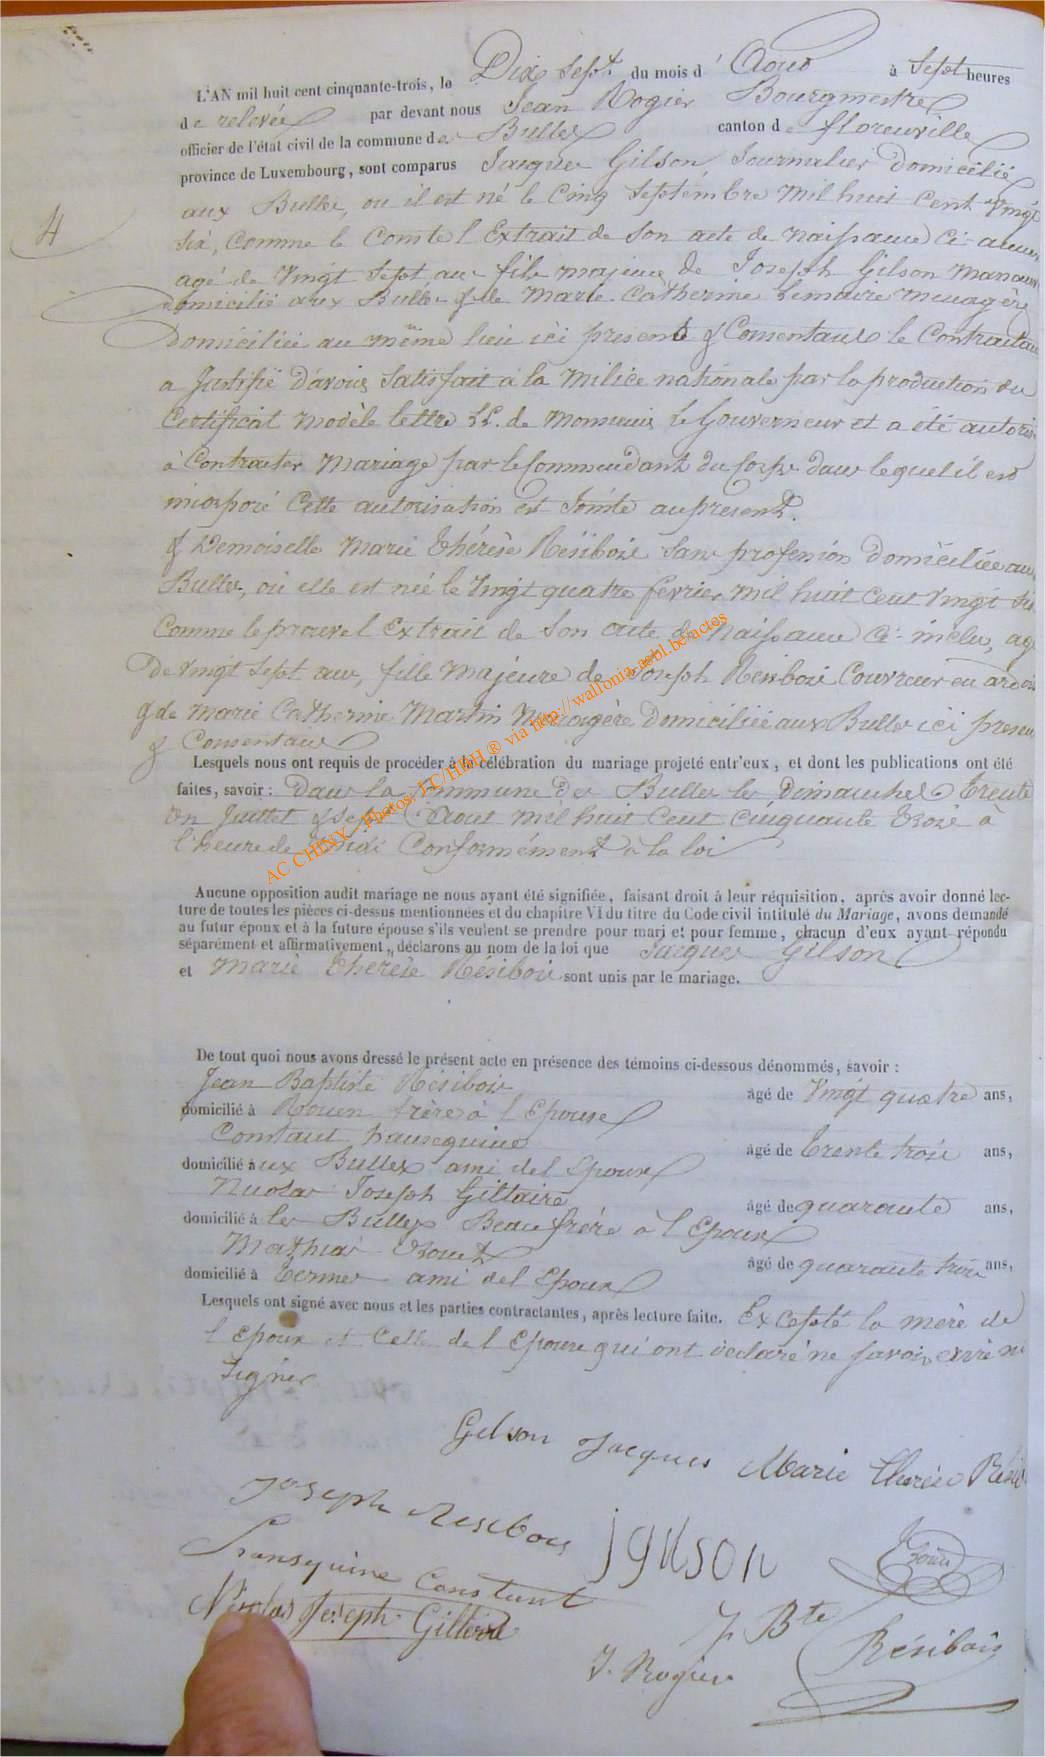 L'AN mil huit cent cinquante-trois, le Dix Sept du mois d'Aout à Sept heures
de relevée par devant nous Jean Rogier Bourgmestre
officier de l'état civil de la commune des Bulles canton de florenville
province de Luxembourg, sont comparus Jacques Gilson, Journalier Domicilié
4
aux Bulles, ou il est né le Cinq Septembre mil huit Cent Vingt
six, Comme le Conste l'Extrait de Son acte de naissance Ci-annexé
agé de Vingt Sept ans fils majeur de Joseph Gilson Manoeuvre
domicilié aux Bulles & de Marie Catherine Lemaire Menagère
Domiciliée au même lieu ici présents & Consentans le Contractant
a Justifié D'avoir Satisfait à la Milice nationale par la production du
Certificat Modèle lettre LL. de Monsieur Le Gouverneur et a été autorisé
à Contracter Mariage par le Commendant du Corps dans lequel il est
incorporé Cette autorisation est Jointe au present.
& Demoiselle Marie Thérèse Résibois Sans profession Domiciliée aux
Bulles, où elle est née le Vingt quatre fevrier mil huit Cent Vingt Six
Comme le prouve l'Extrait de Son acte de Naissance Ci-inclu, agée
De Vingt Sept ans, fille Majeure de Joseph Résibois Couvreur en ardoises
& de Marie Catherine Martin Menagère Domiciliée aux Bulles ici présens
& Consentans
Lesquels nous ont requis de procéder à la célébration du mariage projeté entr'eux, et dont les publications ont été
faites, savoir: Dans la Commune des Bulles les Dimanches Trente
Un Juillet & Sept Aout Mil huit Cent Cinquante Trois à
l'heure de midi Conformément à la loi
Aucune opposition audit mariage ne nous ayant été signifiée, faisant droit à leur réquisition, après avoir donné lec-
ture de toutes les pièces ci-dessus mentionnées et du chapitre VI du titre du Code civil intitulé du Mariage, avons demandé
au futur époux et à la future épouse s'ils veulent se prendre pour mari et pour femme, chacun d'eux ayant répondu
séparément et affirmativement, déclarons au nom de la loi que Jacques Gilson
et Marie Therèse Résibois sont unis par le mariage.
De tout quoi nous avons dressé le présent acte en présence des témoins ci-dessous dénommés, savoir :
Jean Baptiste Résibois âgé de Vingt quatre ans,
domicilié à Rouen frère à l'Epouse
Constant hansequine âgé de Trente trois ans,
domicilié aux Bulles ami del'Epoux
Nicolas Joseph Giltaire âgé de quarante ans,
domicilié à les Bulles Beau frère à l'Epoux
Mathias âgé de quarante trois ans,
domicilié à Termes ami del'Epoux
Lesquels ont signé avec nous et les parties contractantes, après lecture faite. Excepté la mère de
l'Epoux et Celle de l'Epouse qui ont déclaré ne savoir écrire ni
Signer
Gilson Jacques Marie Thérèse Résib
Joseph Resibois jgilson
hansequine Constant
Nicolas Joseph Giltaire J Bte Résibois
J. Rogier
AC CHINY - Photos: J-C/HBH ® via http://wallonia-asbl.be/actes